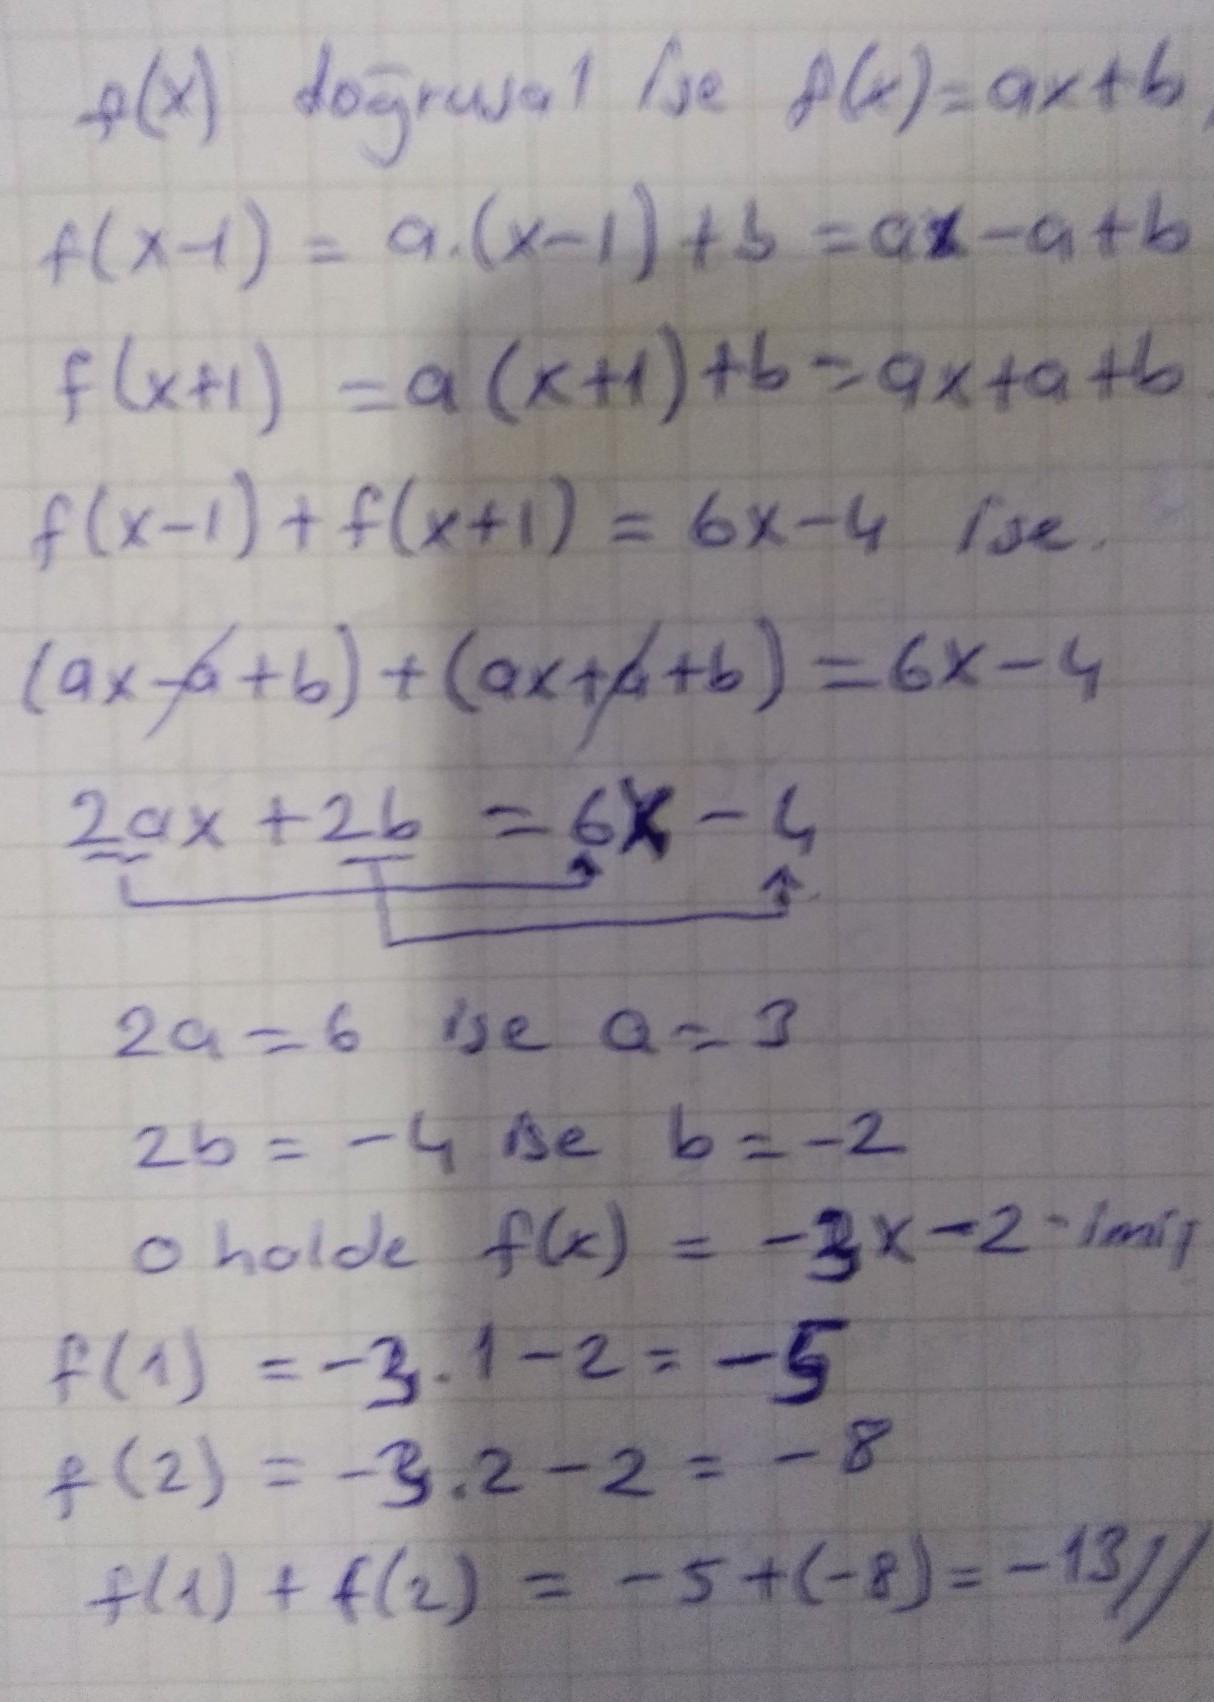 f(x) doğrusal ise f(x)=ax+b,
f(x-1) = a.(x-1)+b =ax-a+b
f(x+1) =a(x+1)+b=ax+a+b
f(x-1)+f(x+1) = 6x-4 ise.
(ax-a+b)+(ax+a+b)=6x-4
2ax+2b =6x-4
2a=6 ise a=3
2b=-4 ise b=-2
o halde f(x) = -3x-2-imiş
f(1) =-3.1-2=-5
f(2) =-3.2-2= -8
f(1)+f(2) = -5+(-8)=-13//